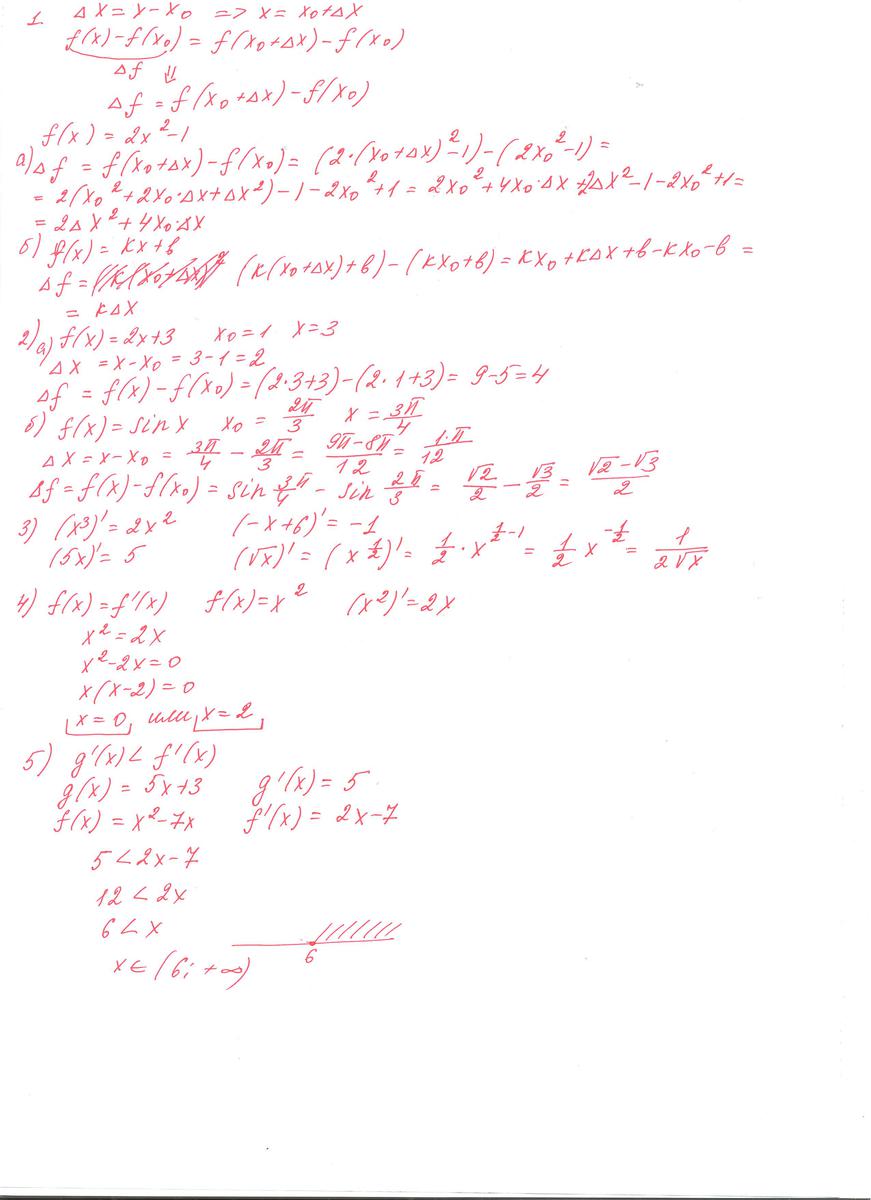 1. Δx = x - x₀ => x = x₀+Δx
f(x) - f(x₀) = f(x₀+Δx) - f(x₀)
Δf ⇓
Δf = f(x₀+Δx) - f(x₀)
f(x) = 2x² - 1
a) Δf = f(x₀+Δx) - f(x₀) = (2·(x₀+Δx)² - 1) - (2x₀² - 1) =
= 2(x₀² + 2x₀·Δx + Δx²) - 1 - 2x₀² + 1 = 2x₀² + 4x₀·Δx + 2Δx² - 1 - 2x₀² + 1 =
= 2Δx² + 4x₀·Δx
б) f(x) = kx + в
Δf = (k(x₀+Δx)+в) - (kx₀+в) = kx₀ + kΔx + в - kx₀ - в =
= kΔx
2) a) f(x) = 2x+3 x₀ = 1 x = 3
Δx = x - x₀ = 3 - 1 = 2
Δf = f(x) - f(x₀) = (2·3+3) - (2·1+3) = 9 - 5 = 4
б) f(x) = sin x x₀ = 2π/3 x = 3π/4
Δx = x - x₀ = 3π/4 - 2π/3 = (9π - 8π)/12 = 1·π/12
Δf = f(x) - f(x₀) = sin 3π/4 - sin 2π/3 = √2/2 - √3/2 = (√2 - √3)/2
3) (x³)' = 2x² (-x+6)' = -1
(5x)' = 5 (√x)' = (x^(1/2))' = 1/2 · x^(1/2 - 1) = 1/2 x^(-1/2) = 1/(2√x)
4) f(x) = f'(x) f(x) = x² (x²)' = 2x
x² = 2x
x² - 2x = 0
x(x - 2) = 0
x = 0, или x = 2
5) g'(x) < f'(x)
g(x) = 5x+3 g'(x) = 5
f(x) = x² - 7x f'(x) = 2x - 7
5 < 2x - 7
12 < 2x
6 < x
6
x ∈ (6; +∞)